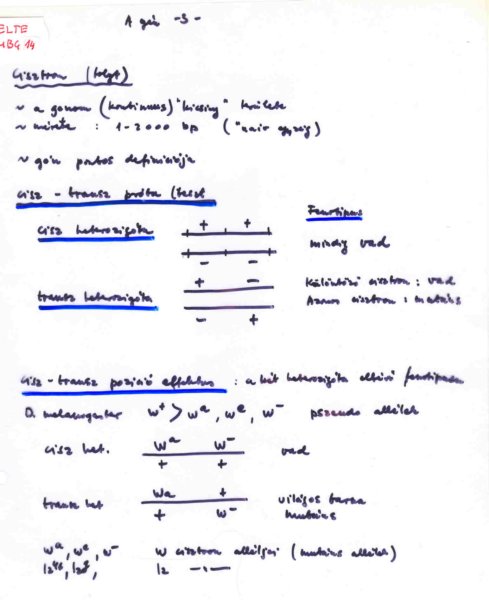 A gén -3-
ELTE
MBG 14
Cisztron (folyt)
~ a genom (kontinuus) "kicsiny" területe
~ mérete : 1-2000 bp (
~ gén pontos definíciója
cisz - transz próba (teszt
Fenotípus
cisz heterozigóta
+ +
mindig vad
- -
+ -
Különböző cisztron : vad
transz heterozigóta
Azonos cisztron : mutáns
- +
cisz-transz pozíció effektus : a két heterozigóta eltérő fenotípusa
D. melanogaster w⁺ > wᵃ, wᵉ, w⁻ pszeudo allélek
cisz het. wᵃ w⁻ vad
+ +
transz het wa + világos barna
+ w⁻ mutáns
wᵃ, wᵉ, w⁻ W cisztron alléljei (mutáns allélek)